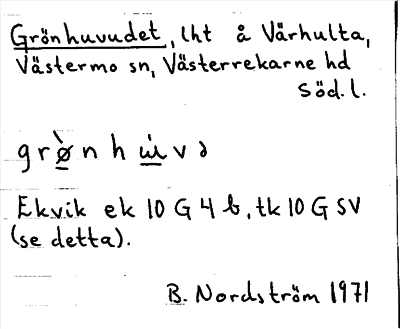 Grönhuvudet, lht å Värhulta,
Västermo sn, Västerrekarne hd
Söd. l.
grø̀nhɯ́və
Ekvik ek 10 G 4 b, tk 10 G SV
(se detta).
B. Nordström 1971